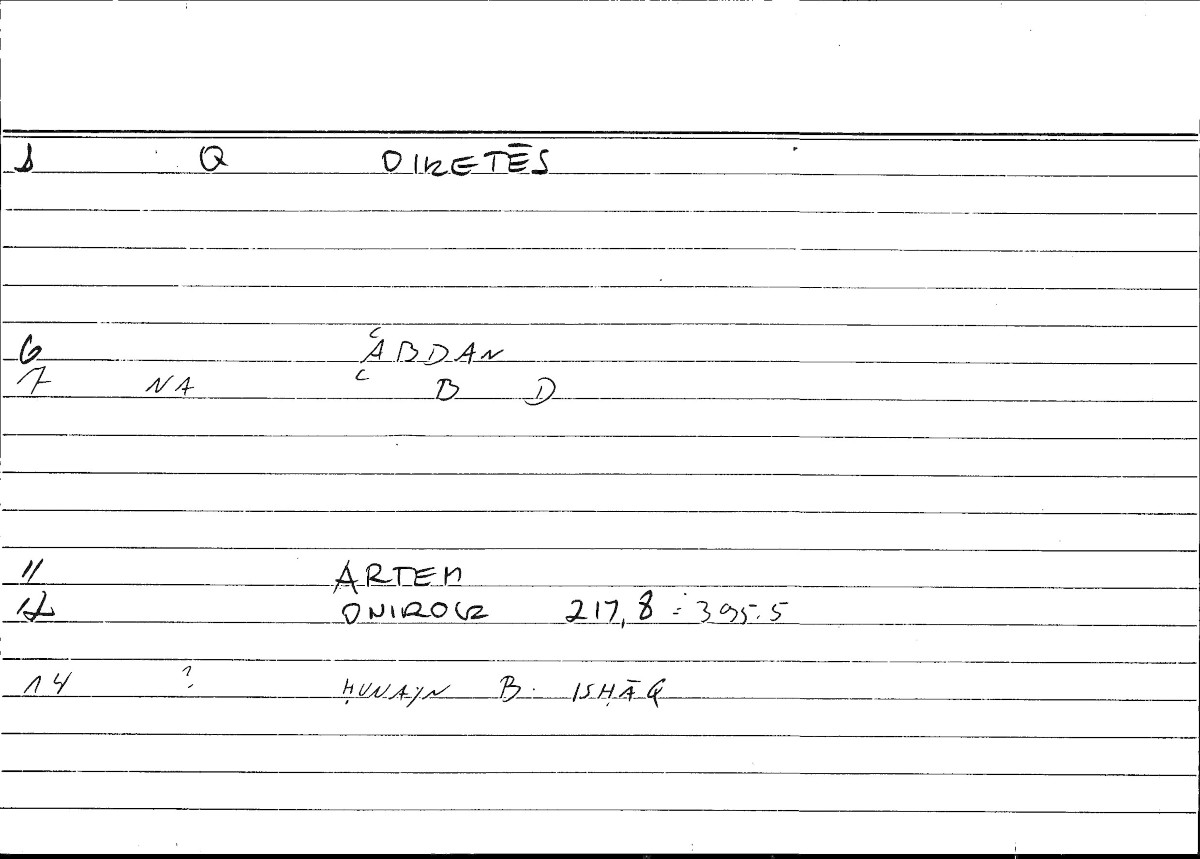 1 Q OIKETĒS
6 ʿABDAN
7 NA ʿ B D
11 ARTEM
12 ONIROCR 217,8 = 395.5
14 ? ḤUNAYN B. ISḤĀQ